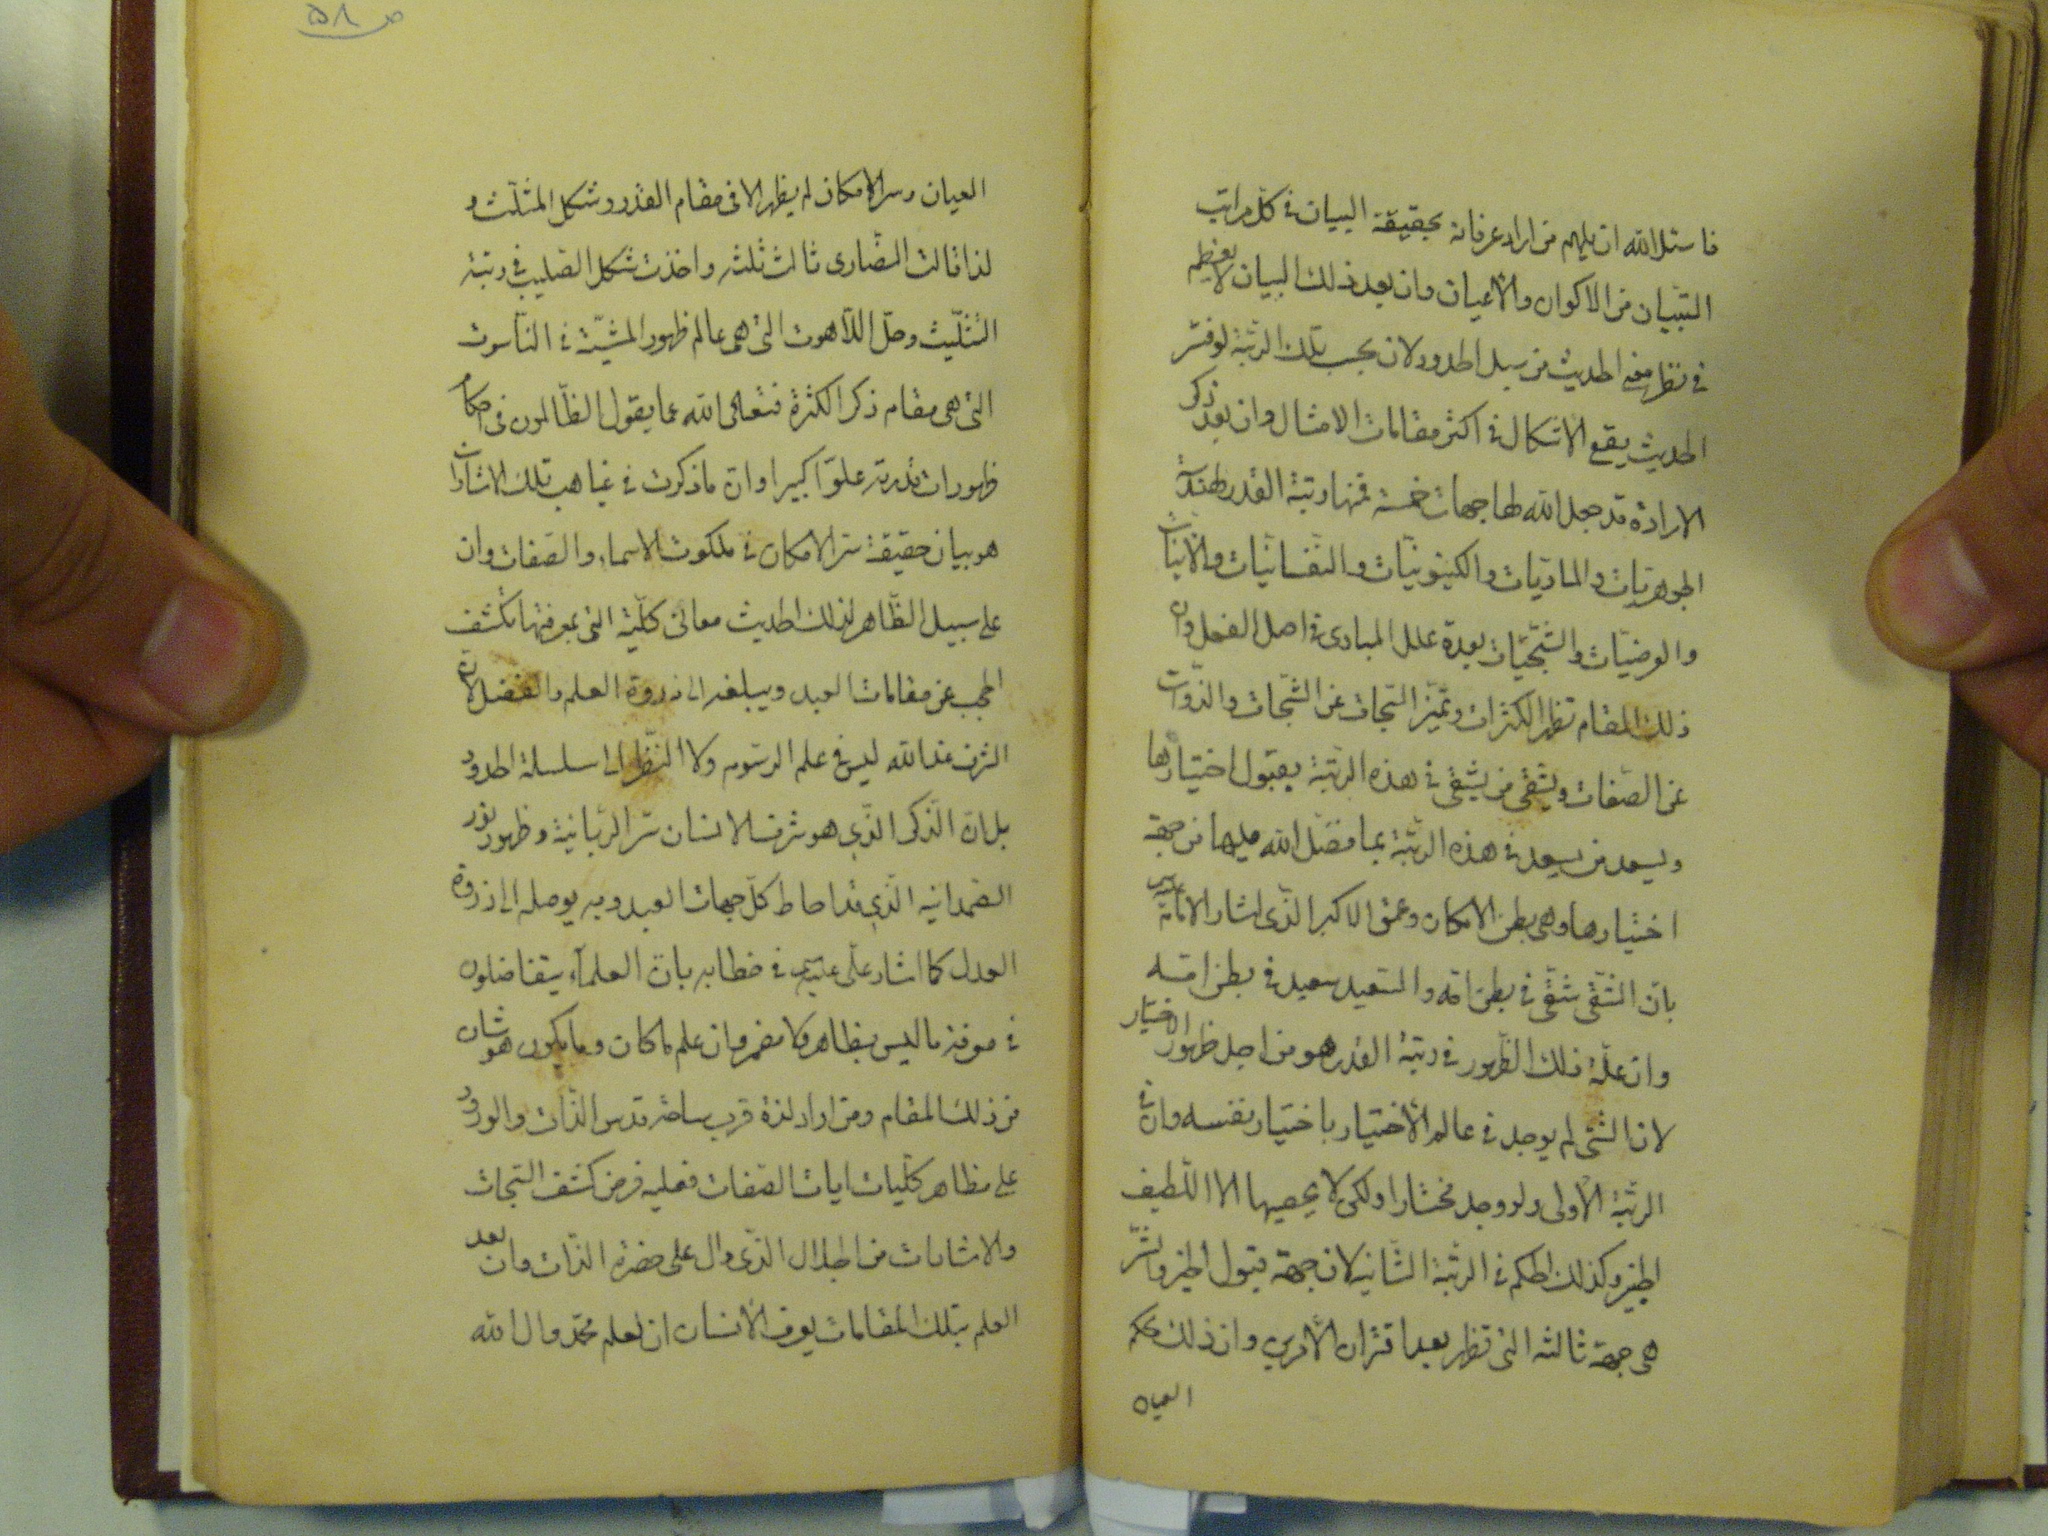 فاسئل الله ان يلهم من اراد عرفانه بحقيقة البيان فى كل مراتب
التبيان من الاكوان والاعيان وان بعد ذلك البيان لا يعظم
فى نظر معنى الحديث من سبل الحدود لان بحسب تلك الرتبة لو فسر
الحديث يقع الاشكال فى اكثر مقامات الامثال وان بعد ذكر
الارادة قد جعل الله لها جهات خمسة فمنها رتبة القدر لهندسة
الجوهريات والماديات والكينونيات والنفسانيات والانيات
والعرضيات والشبحيات بعدة علل المبادى فى اصل الفعل وان
ذلك المقام تظهر الكثرات وتميز السبحات عن الشبحات والذوات
عن الصفات ويشقى من يشقى فى هذه الرتبة بقبول اختيارها
ويسعد من يسعد فى هذه الرتبة بما فضل الله عليها من جهة
اختيارها وهى بطن الامكان وعمق الاكبر الذى اشار الامام
بان الشقى شقى فى بطن امه والسعيد سعيد فى بطن امه
وان علة ذلك الظهور فى رتبة القدر هو من اجل ظهور الاختيار
لان الشئ لم يوجد فى عالم الاختيار باختيار نفسه وان فى
الرتبة الاولى ولو وجد مختارا ولكن لا يحصيها الا اللطيف
الخبير وكذلك الحكم فى الرتبة الثانية لان جهة قبول الخير والشر
هى جهة ثالثه التى تظهر بعد اقتران الامرين وان ذلك بحكم
العيان
ص ٥٨
العيان وسر الامكان لم يظهر الا فى مقام القدر وشكل المثلث و
لذا قالت النصارى ثالث ثلثه واخذت شكل الصليب فى رتبة
التثليث وحل اللاهوت التى هى عالم ظهور المشية فى الناسوت
التى هى مقام ذكر الكثرة فتعالى الله عما يقول الظالمون فى احكام
ظهورات قدرته علوا كبيرا وان ما ذكرت فى غياهب تلك الاشارات
هو بيان حقيقة سر الامكان فى ملكوت الاسماء والصفات وان
على سبيل الظاهر لذلك الحديث معانى كلية التى بمعرفتها تكشف
الحجب عن مقامات العبد ويبلغه الى ذروة العلم والفضل لان
الشرف عند الله ليس فى علم الرسوم ولا النظر الى سلسلة الحدود
بل ان الذكر الذى هو شرف الانسان سر الربانية وظهور نور
الصمدانيه الذى قد احاط كل جهات العبد وبه يوصله الى ذروة
العدل كما اشار على فى خطابه بان العلماء يتفاضلون
فى معرفة ما ليس بظاهر ولا مضمر وان علم ما كان وما يكون هو شان
من ذلك المقام ومن اراد لذة قرب ساحة قدس الذات والورود
على مظاهر كليات ايات الصفات فعليه فرض كشف السبحات
والاشارات من الجلال الذى دال على حضرة الذات وان بعد
العلم بتلك المقامات يعرف الانسان ان لعلم محمد وال الله